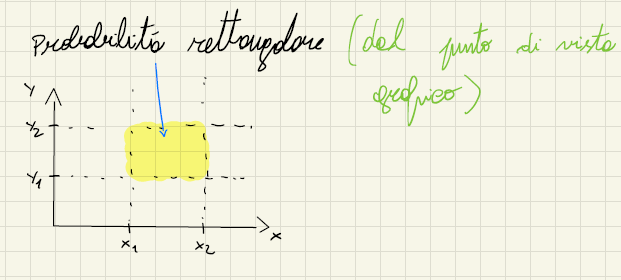 Probabilità rettangolare (dal punto di vista
grafico)
Y
Y2
Y1
X1
X2
X